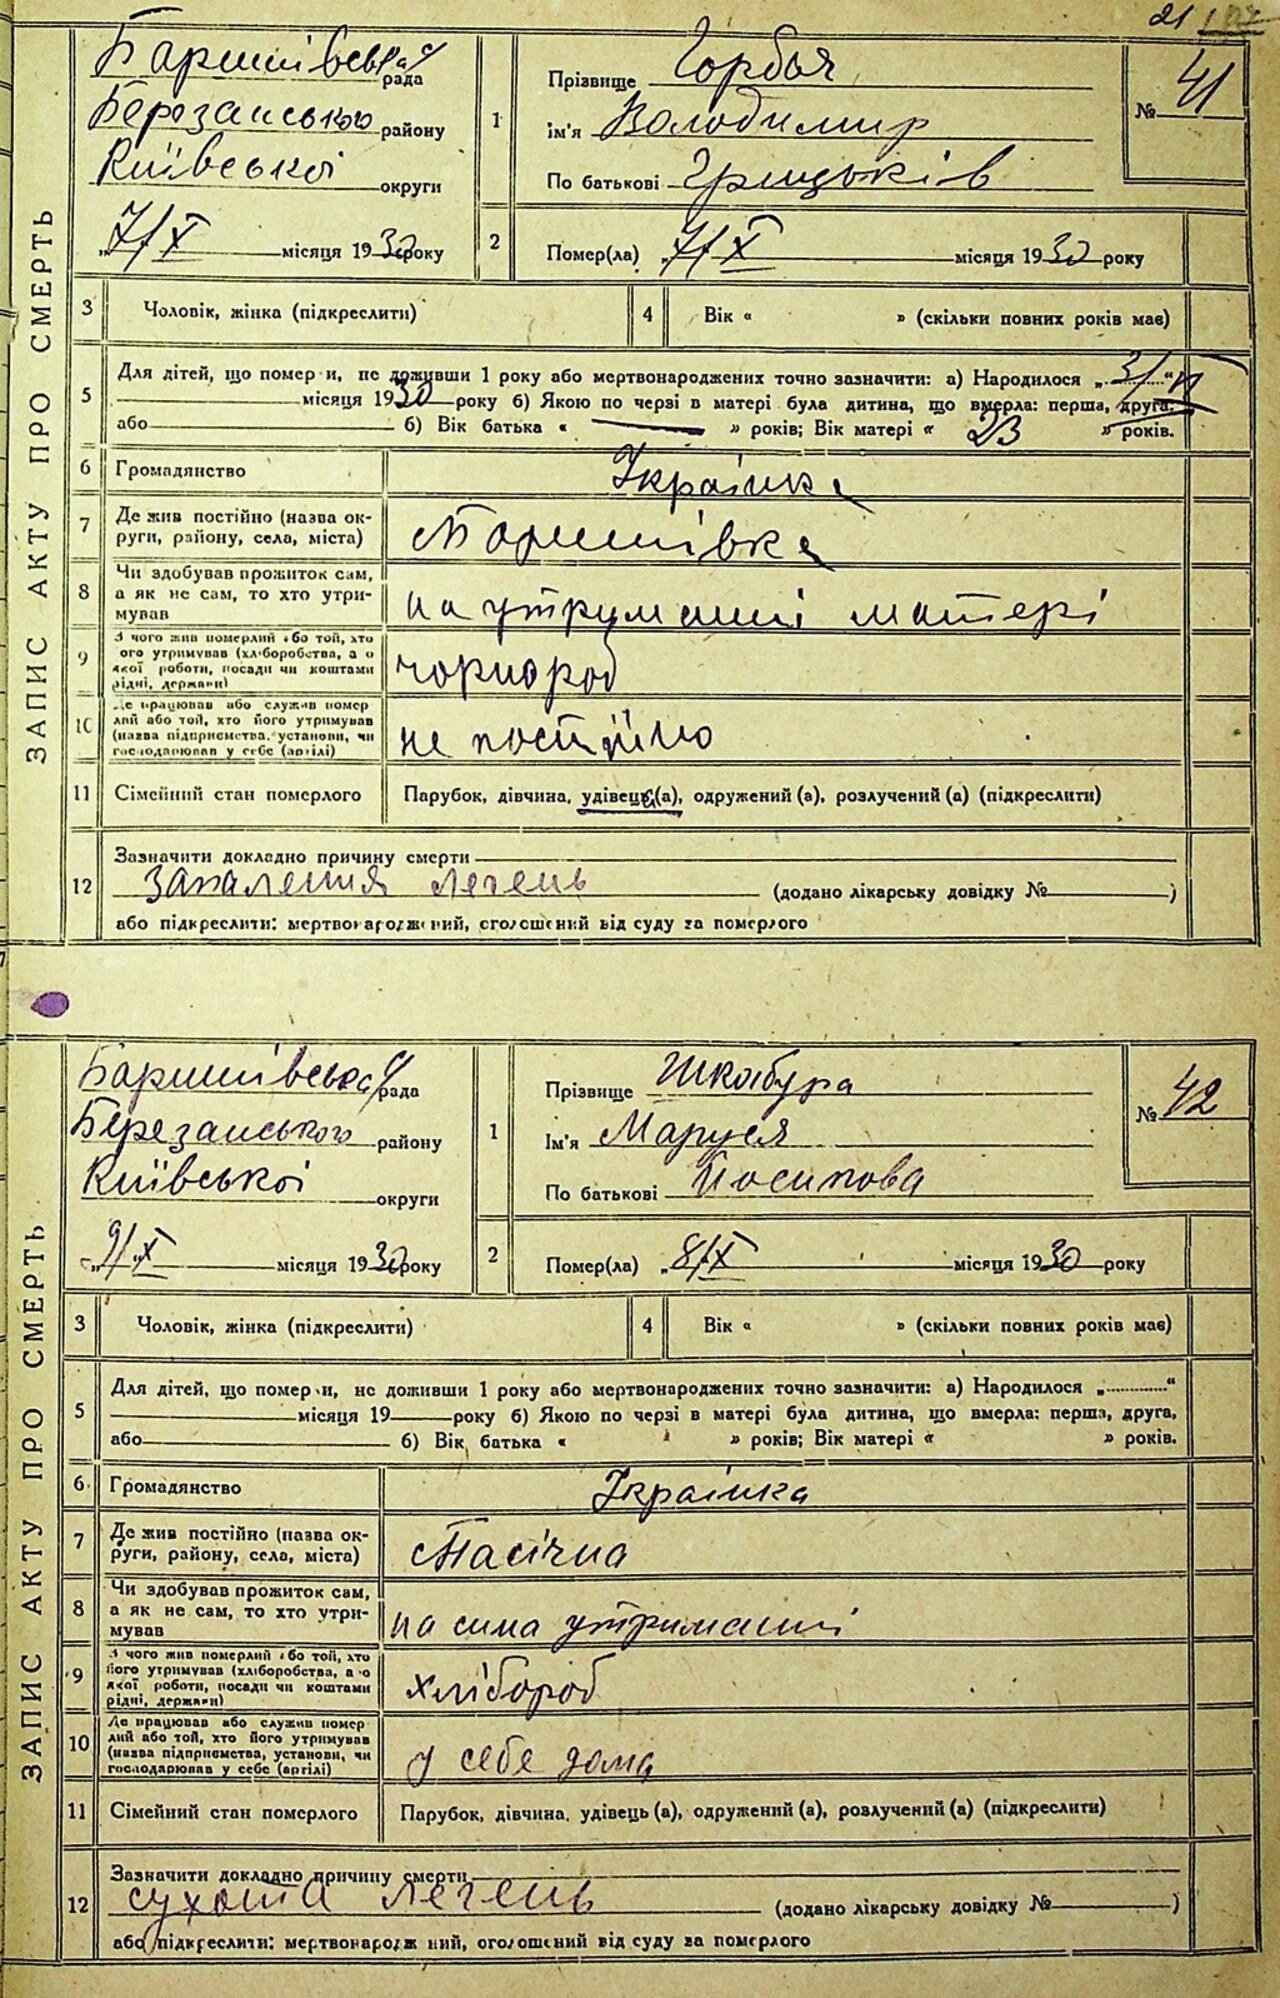 21
ЗАПИС АКТУ ПРО СМЕРТЬ
Баришівська рада
Березанського району
Київської округи
„7/X місяця 1930 року
1
Прізвище Горбач
Ім'я Володимир
По батькові Грицьків
№ 41
2
Помер(ла) „7/X місяця 1930 року
3 Чоловік, жінка (підкреслити)
4 Вік « » (скільки повних років має)
5 Для дітей, що померли, не доживши 1 року або мертвонароджених точно зазначити: а) Народилося „3/VI“
місяця 1930 року б) Якою по черзі в матері була дитина, що вмерла: перша, друга,
або б) Вік батька « — » років; Вік матері « 23 » років.
6 Громадянство Українка
7 Де жив постійно (назва округи, району, села, міста) Баришівка
8 Чи здобував прожиток сам, а як не сам, то хто утримував на утриманні матері
9 З чого жив померлий або той, хто його утримував (хліборобства, а о якої роботи, посади чи коштами рідні, держави) чорнороб
10 Де працював або служив померлий або той, хто його утримував (назва підприємства, установи, чи господарював у себе (артілі) не постійно
11 Сімейний стан померлого Парубок, дівчина, удівець(а), одружений (а), розлучений (а) (підкреслити)
12 Зазначити докладно причину смерти
запалення легень (додано лікарську довідку № )
або підкреслити: мертвонароджений, оголошений від суду за померлого
ЗАПИС АКТУ ПРО СМЕРТЬ
Баришівська рада
Березанського району
Київської округи
„9/X місяця 1930 року
1
Прізвище Шкабура
Ім'я Маруся
По батькові Йосипова
№ 42
2
Помер(ла) „8/X місяця 1930 року
3 Чоловік, жінка (підкреслити)
4 Вік « » (скільки повних років має)
5 Для дітей, що померли, не доживши 1 року або мертвонароджених точно зазначити: а) Народилося „ “
місяця 19 року б) Якою по черзі в матері була дитина, що вмерла: перша, друга,
або б) Вік батька « » років; Вік матері « » років.
6 Громадянство Українка
7 Де жив постійно (назва округи, району, села, міста) Пасічна
8 Чи здобував прожиток сам, а як не сам, то хто утримував на сина утриманні
9 З чого жив померлий або той, хто його утримував (хліборобства, а о якої роботи, посади чи коштами рідні, держави) хлібороб
10 Де працював або служив померлий або той, хто його утримував (назва підприємства, установи, чи господарював у себе (артілі) у себе дома
11 Сімейний стан померлого Парубок, дівчина, удівець (а), одружений (а), розлучений (а) (підкреслити)
12 Зазначити докладно причину смерти
сухота легень (додано лікарську довідку № )
або підкреслити: мертвонароджений, оголошений від суду за померлого